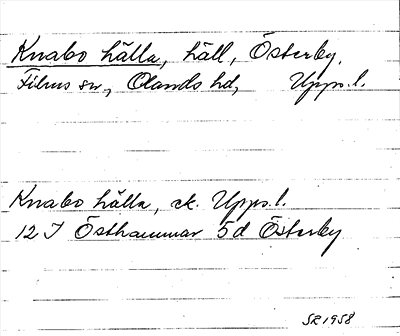 Knabo hälla, häll, Österby,
Films sn, Olands hd, Upps.l.
Knabo hälla, ek. Upps.l.
12 I Östhammar 5d Österby
SR 1958